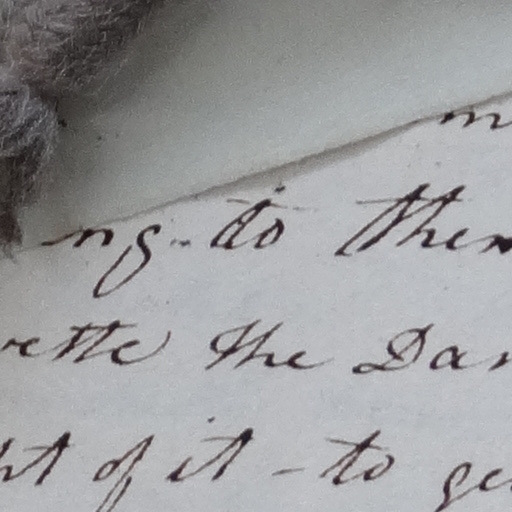 ng to them
ette the Dan
ht of it - to ge